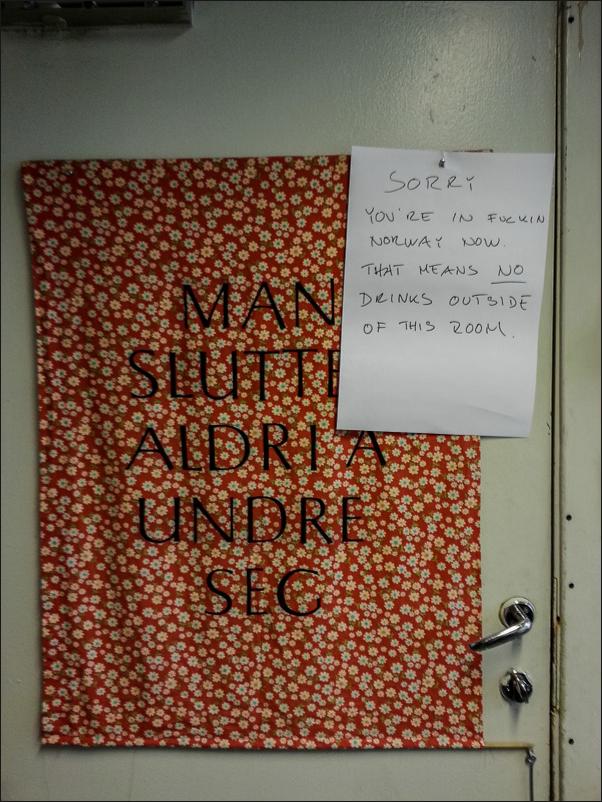 MAN
SLUTTE
ALDRI A
UNDRE
SEG
SORRY
YOU'RE IN FUCKIN
NORWAY NOW.
THAT MEANS NO
DRINKS OUTSIDE
OF THIS ROOM.